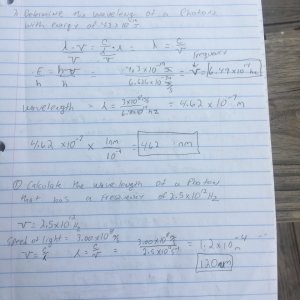 Determine the wavelength of a Photon
with Energy of
λ · ν = c/λ · λ = λ = c/ν
frequency
E/h = hν/h = 4.3 x 10⁻¹⁹ / 6.626 x 10⁻³⁴ = ν = 6.49 x 10¹⁴ hz
wavelength = λ = 3x10⁸ m/s = 4.62 x 10⁻⁷ m
4.62 x 10⁻⁷ x 1nm/10⁻⁹ = 462 nm
① Calculate the wavelength of a Photon
that has a frequency of 2.5x10¹² Hz
ν = 2.5x10¹²
Speed of light = 3.00x10⁸ m/s
ν = c/λ λ = c/ν = 3.00x10⁸ = 1.2x10⁻⁴ m
120nm